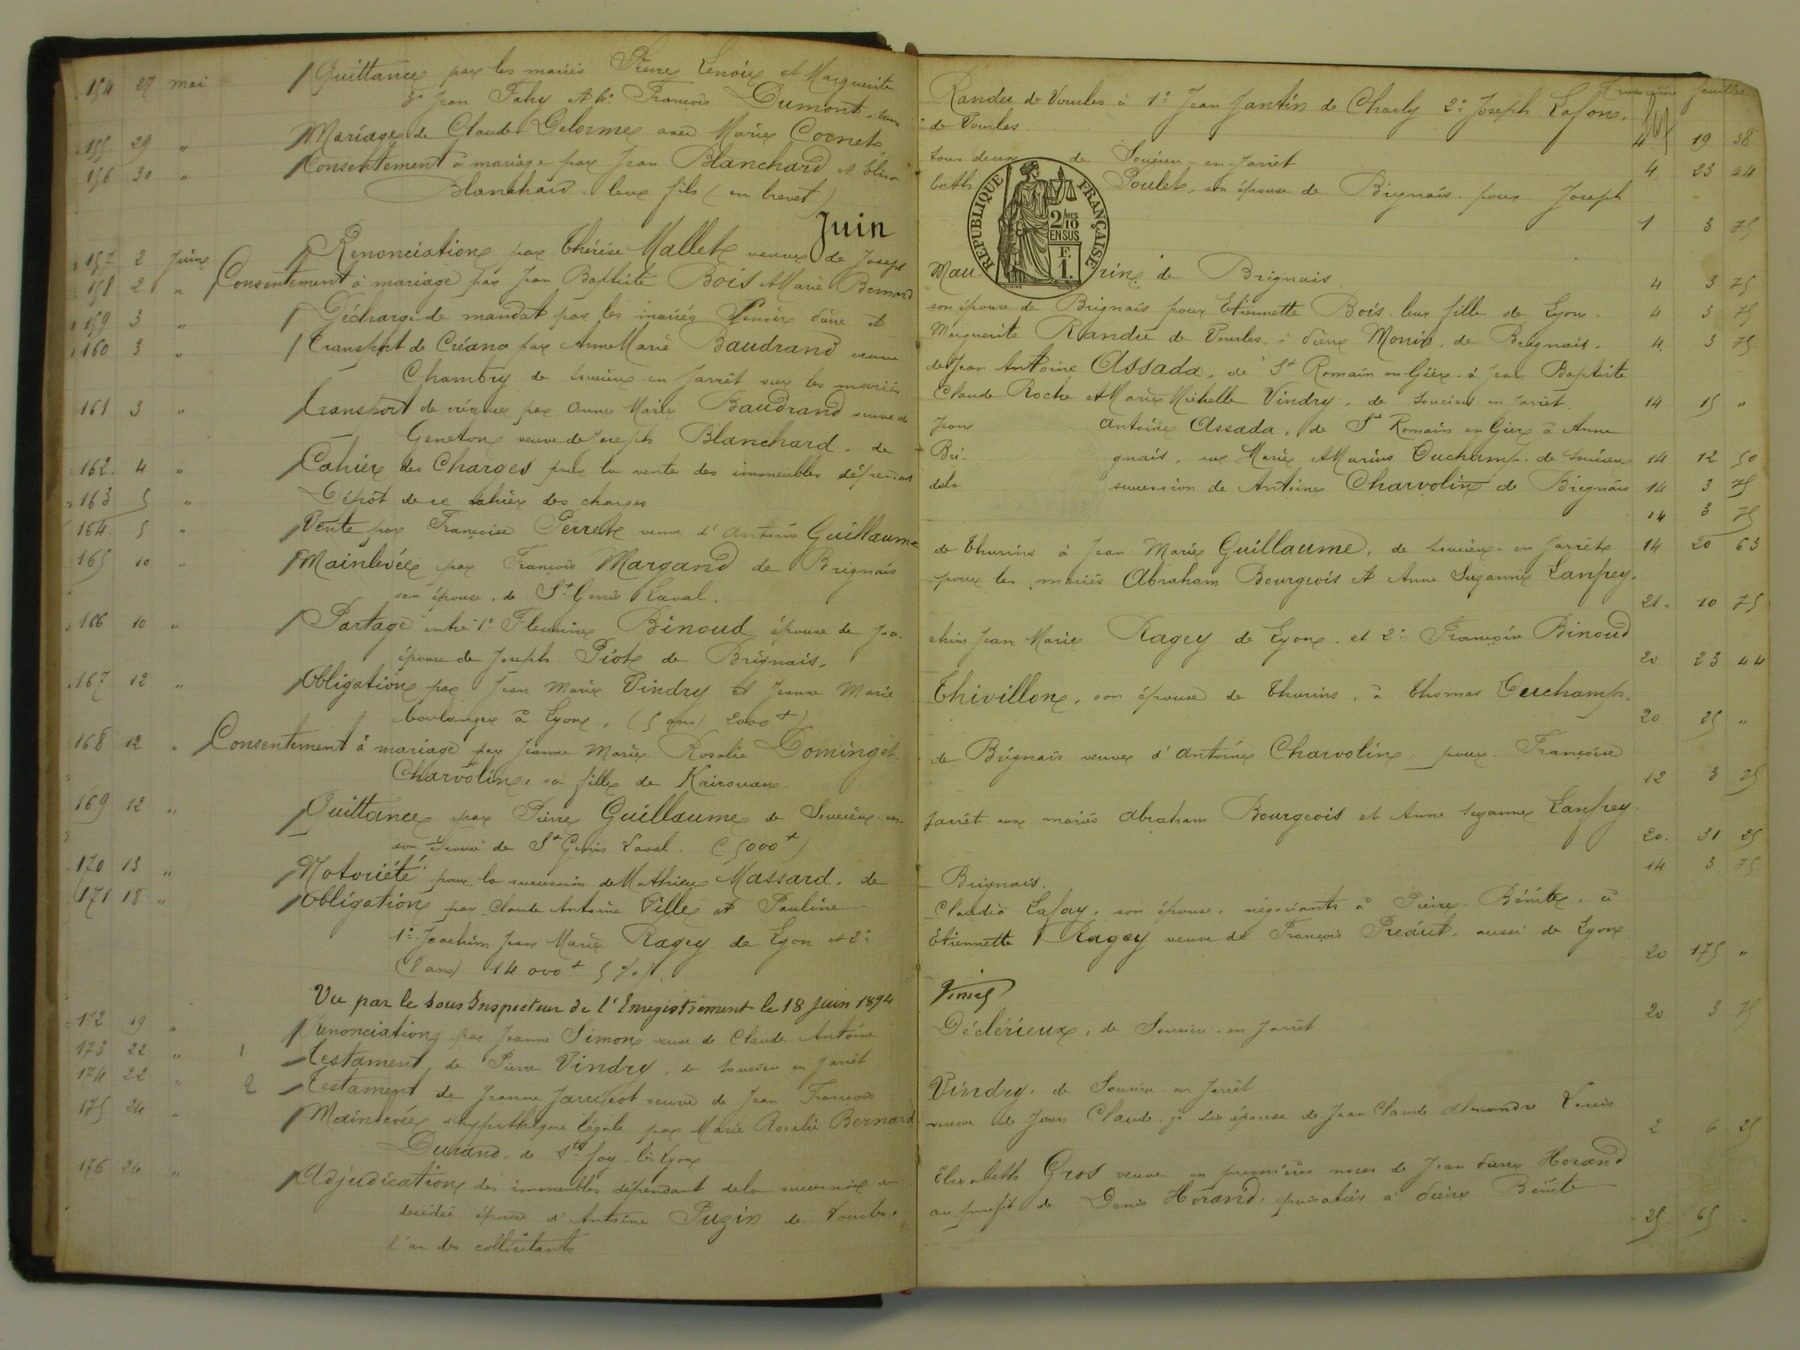 154 27 mai Quittance par les mariés Pierre Lenoir et Marguerite Randu de Vourles à 1° Jean Jantin de Charly 2° Joseph Lafont
3° Jean Fahy et 4° Francois Dumont, tous de Vourles. 4 19 38
155 29 " Mariage de Claude Delorme avec Marie Cornet tous deux de Soucieu-en-Jarret 4 23 44
156 30 " Consentement à mariage par Jean Blanchard et Elisa beth Poulet, son épouse de Brignais, pour Joseph
Blanchard leur fils (en brevet) 1 3 75
Juin
RÉPUBLIQUE FRANÇAISE
2/10 EN SUS
F. 1.
157 2 Juin Renonciation par Thérèse Mallet veuve de Joseph Mau rin de Brignais 4 3 75
158 2 " Consentement à mariage par Jean Baptiste Bois et Marie Bernard son épouse de Brignais pour Etiennette Bois leur fille de Lyon. 4 3 75
159 3 " Décharge de mandat par les mariés Lenoir Pierre et Marguerite Randu de Vourles à Pierre Monin, de Brignais. 4 3 75
160 3 " Transport de Créance par Anne Marie Baudrand veuve de Jean Antoine Assada, de St Romain en Gier à Jean Baptiste
Chambry de Soucieu en Jarrêt sur les mariés Claude Roche et Marie Michelle Vindry, de Soucieu en Jarret. 14 15 "
161 3 " Transport de créance par Anne Marie Baudrand veuve de Jean Antoine Assada, de St Romain en Gier à Anne
Geneton veuve de Joseph Blanchard, de Bri- gnais, sur Marie et Marius Ouchamp de Soucieu 14 12 50
162 4 " Cahier des Charges pour la vente des immeubles dépendant dela succession de Antoine Charvolin de Brignais 14 3 75
163 5 " Dépôt de ce cahier des charges 14 3 75
164 5 " Vente par Françoise Perret veuve d'Antoine Guillaume de Thurins à Jean Marie Guillaume, de Soucieu-en-Jarret 14 20 63
165 10 " Mainlevée par François Margand de Brignais pour les mariés Abraham Bourgeois et Anne Suzanne Lanfrey,
son épouse, de St Genis Laval. 21 10 75
166 10 " Partage entre 1° Fleurine Binoud épouse de Joa- chim Jean Marie Ragey de Lyon et 2° Françoise Binoud
épouse de Joseph Piot de Brignais. 20 23 44
167 12 " Obligation par Jean Marie Vindry et Jeanne Marie Thivillon, son épouse de Thurins, à Thomas Ouchamp,
boulanger à Lyon, (5 ans) 2000 f) 20 25 "
168 12 " Consentement à mariage par Jeanne Marie Rosalie Dominget de Brignais veuve d'Antoine Charvolin pour Françoise
Charvolin, sa fille de Kairouan. 12 3 75
169 12 " Quittance par Pierre Guillaume de Soucieu-en- Jarrêt aux mariés Abraham Bourgeois et Anne Suzanne Lanfrey
son épouse de St Genis Laval. (5000 f) 20 31 25
170 13 " Notoriété pour la succession de Mathieu Massard, de Brignais. 14 3 75
171 18 " Obligation par Claude Antoine Ville et Pauline Claudia Lafay, son épouse, négociants à Pierre-Bénite, à
1° Joachim Jean Marie Ragey de Lyon et 2° Etiennette Ragey veuve de François Préaut, aussi de Lyon
(8 ans) 14 000 f 5 %. 20 175 "
Vu par le Sous Inspecteur de l'Enregistrement le 18 Juin 1894
172 19 " Renonciation par Jeanne Simon veuve de Claude Antoine Déclérieux, de Soucieu en Jarret 20 3 75
173 22 " 1 Testament de Pierre Vindry, de Soucieu en Jarret
174 22 " 2 Testament de Jeanne Jaricot veuve de Jean François Vindry, de Soucieu en Jarret
175 24 " Mainlevée d'hypothèque légale par Marie Rosalie Bernard veuve de Jean Claude épouse de Jean Claude Alexandre Louis
Durand, de Ste foy-lès-Lyon 2 6 25
176 24 " Adjudication des immeubles dépendant dela succession de Elisabeth Gros veuve en premières noces de Jean Pierre Horand
décédée épouse d'Antoine Puzin de Vourles, au profit de Denis Horand, à Pierre Bénite
l'un des colicitants 25 65